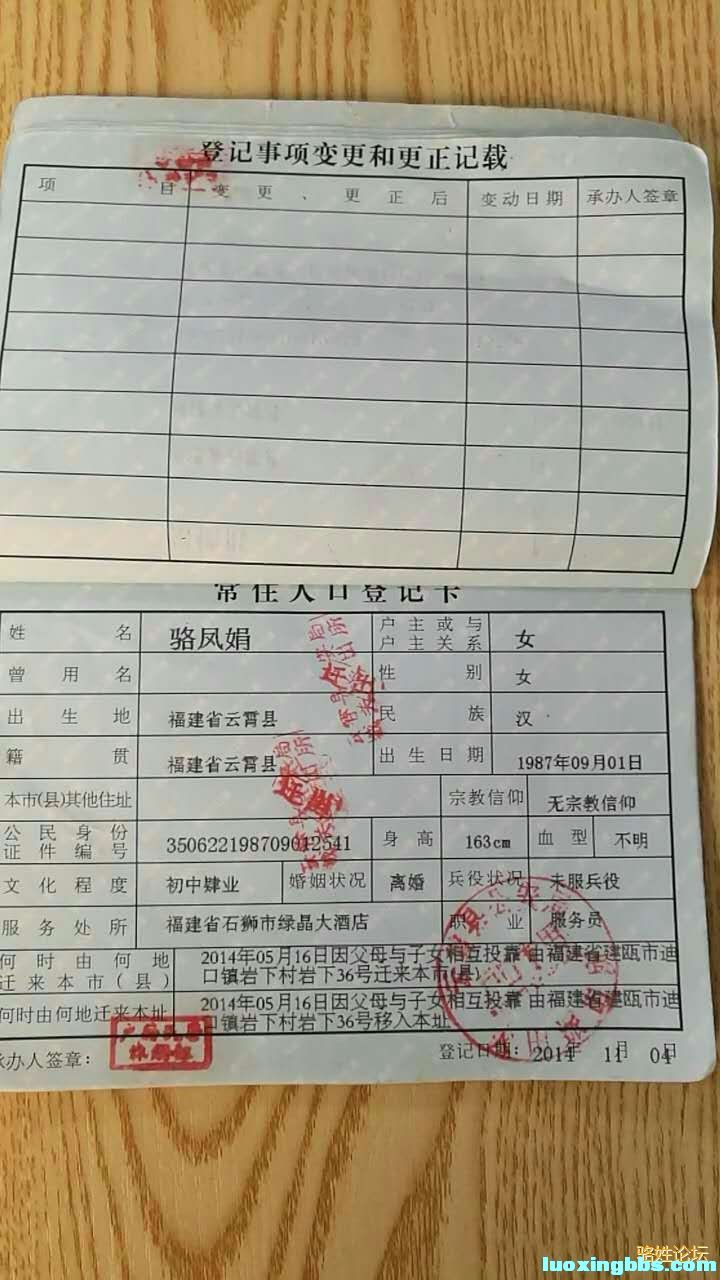 登记事项变更和更正记载
项 目 变更、更正后 变动日期 承办人签章
常住人口登记卡
姓名 骆凤娟 户主或与户主关系 女
曾用名 性别 女
出生地 福建省云霄县 民族 汉
籍贯 福建省云霄县 出生日期 1987年09月01日
本市(县)其他住址 宗教信仰 无宗教信仰
公民身份证件编号 350622198709012541 身高 163cm 血型 不明
文化程度 初中肆业 婚姻状况 离婚 兵役状况 未服兵役
服务处所 福建省石狮市绿晶大酒店 职业 服务员
何时由何地迁来本市(县) 2014年05月16日因父母与子女相互投靠 由福建省建瓯市迪
口镇岩下村岩下36号迁来本市(县)
何时由何地迁来本址 2014年05月16日因父母与子女相互投靠 由福建省建瓯市迪
口镇岩下村岩下36号移入本址
承办人签章: 登记日期: 2014年 11月 04日
骆姓论坛
luoxingbbs.com